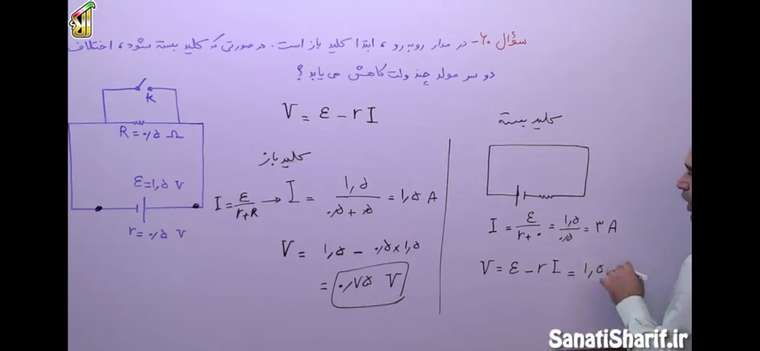 سؤال ۶۰- در مدار روبه رو، ابتدا کلید باز است. در صورتی که کلید بسته شود، اختلاف
دو سر مولد چند ولت کاهش می یابد؟
K
R = ۰٫۵ Ω
ε = ۱٫۵ V
r = ۰٫۵ V
V = ε - rI
کلید باز
I = ε / r+R → I = ۱٫۵ / ۰٫۵ + ۰٫۵ = ۱٫۵ A
V = ۱٫۵ - ۰٫۵ × ۱٫۵
= ۰٫۷۵ V
کلید بسته
I = ε / r+۰ = ۱٫۵ / ۰٫۵ = ۳ A
V = ε - rI = ۱٫۵
SanatiSharif.ir